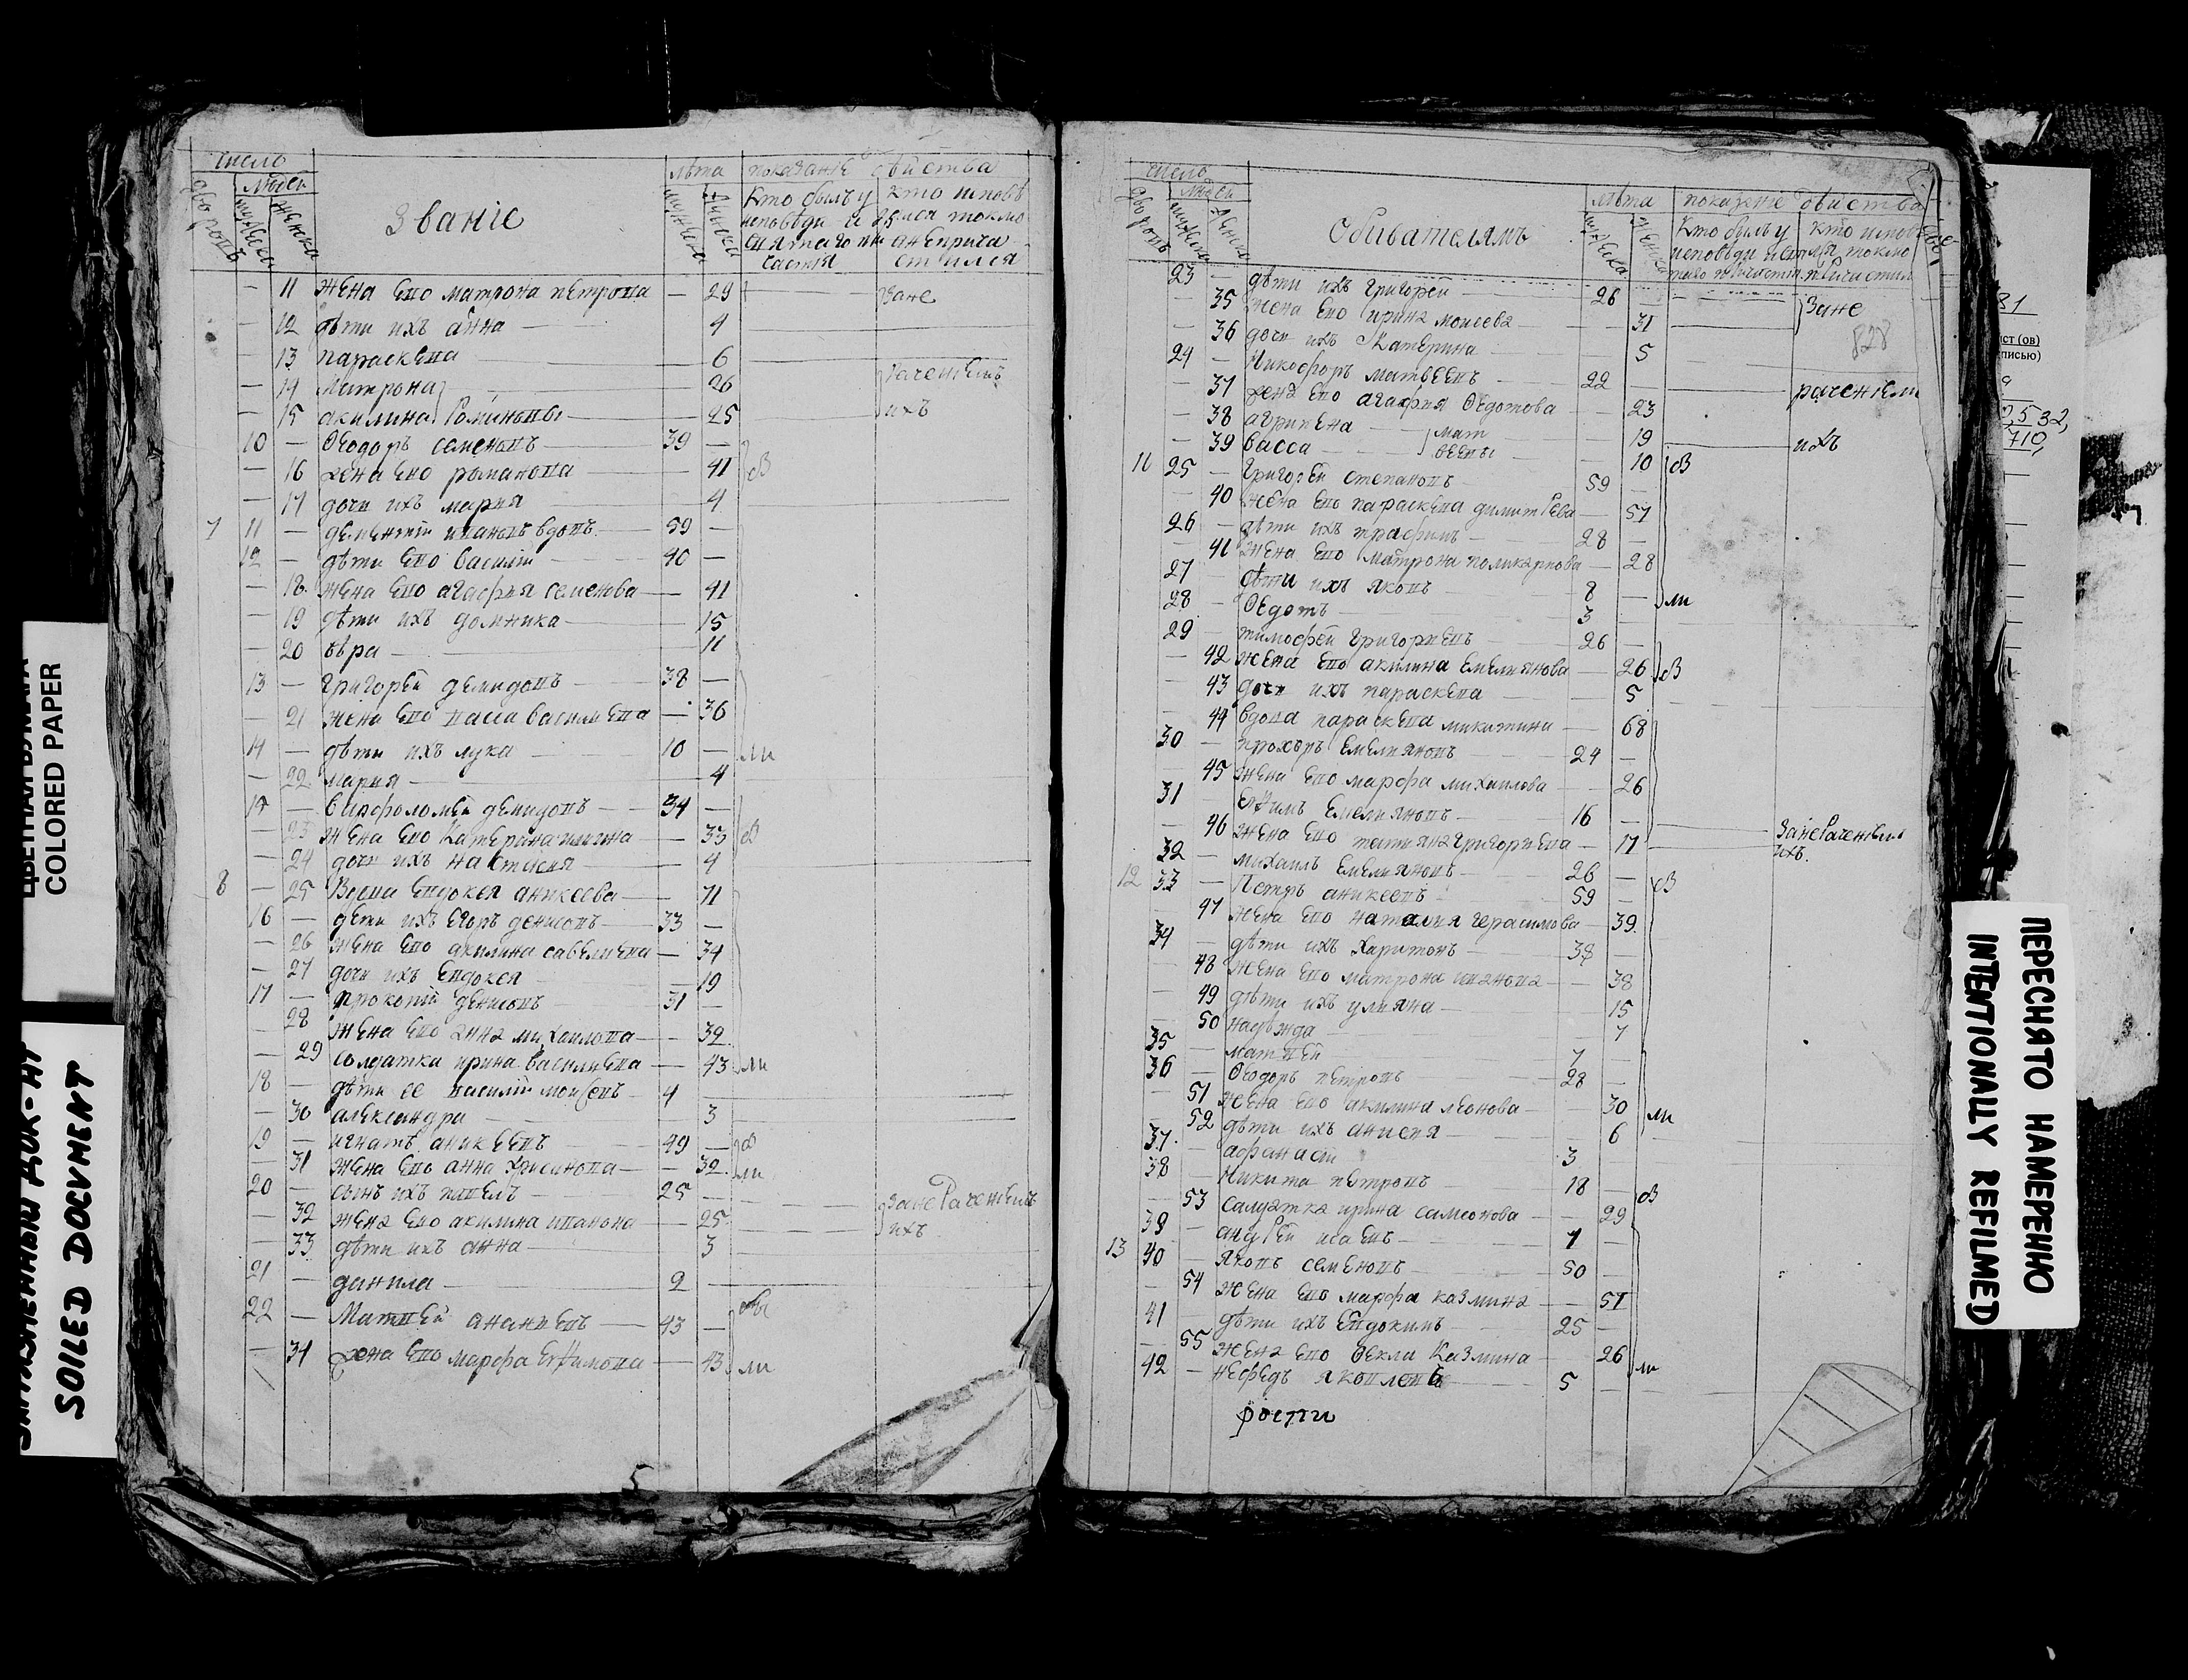 число
людей
дворовъ
мужеска
женска
Званіе
лѣта
мужеска
женска
показаніе действа
Кто былъ у исповѣди и святаго причастія
кто исповѣ токмо а неприча стился
11 жена Его матрона пЕтрова — 29 зане
12 дѣти ихъ анна — 4
13 параскЕва — 6
14 матрона — 26 раченіемъ
15 акилина Фоминовы — 25 ихъ
10 — Ѳеодоръ семеновъ — 39 —
16 жена Его романова — 41 в
17 дочь ихъ мария — 4
7 11 — дЕмЕнтій ивановъ вдовъ 59 —
12 — дѣти Его василій — 40 —
18 жена Его агафия семенова — 41
19 дѣти ихъ домника — 15
20 — 11
13 — григорЕй дЕмидовъ — 38 —
21 жена Его васса василиЕва — 36
14 — дѣти ихъ лука — 10 — ли
22 мария — 4
— варфоломЕй дЕмидовъ — 34 —
23 жена Его КатЕрина илина — 33 в
24 дочь ихъ настасия — 4
8 — 25 Вдова Евдокея аникеева — 71
16 — дети ихъ Егоръ денисовъ — 33 —
26 жена Его акилина савЕлиЕва — 34
27 дочь ихъ Евдокея — 19
17 — прокопій денисовъ 31 —
28 жена Его анна михаилова — 32
29 солдатка ирина василиЕва — 43 ли
18 — дѣти ее василій моисеевъ — 4
30 александра — 3
19 — игнатъ аникЕЕвъ — 49 — в
31 жена Его анна — 32 ли
20 — сынъ ихъ павЕлъ — 25 — зане Раченіемъ
32 жена Его акилина иванова — 25 ихъ
33 дѣти ихъ анна — 3
21 — данила — 2
22 — МатвЕй ананиЕвъ — 43 —
34 жена Его марфа Ефимова — 43 ли
число
людей
дворовъ
мужеска
женска
Обивателямъ
лѣта
мужеска
женска
показаніе действа
Кто былъ у исповѣди и свята таго причасти
кто испов токмо
23 — дѣти ихъ григорей — 26 — Зане
35 жена Его ирина моисева — 31
828
36 дочь ихъ Катерина — 5
24 — Никифоръ матвЕЕвъ — 22 — раченіем
37 жена Его агафия Ѳедотова — 23
38 агрипЕна — 19 ихъ
39 васса мат вЕЕвы — 10
11 25 — григорЕй степановъ — 59 — в
40 жена Его параскЕва димитРева — 57
26 — дѣти ихъ трафимъ — 28 —
41 жена Его матрона поликарпова — 28
27 — дѣти ихъ яковъ — 8 —
28 — Ѳедотъ — 3 ли
29 — тимофЕй григориЕвъ — 26 —
42 жена Его акилина Емелиянова — 26 в
43 дочь ихъ параскЕва — 5
44 вдова параскЕва микитина — 68
30 — прохъръ Емелияновъ — 24 —
45 жена Его марфа михаилова — 26
31 — Ефимъ Емелияновъ — 16 —
46 жена Его татияна григориЕва — 17 Зане Рачением ихъ
32 — михаилъ Емелияновъ — 26 —
12 33 — Петръ аникеевъ — 59 — в
47 жена Его наталия герасимова — 39
34 — дѣти ихъ Харитонъ — 38 —
48 жена Его матрона иванова — 38
49 дѣти ихъ улияна — 15
50 надѣжда — 7
35 — матвей — 7 —
36 — Ѳеодоръ пЕтровъ — 28 —
51 жена Его акилина леонова — 30 ли
52 дѣти ихъ анисия — 6
37 — афанаси 3
38 — Никита пЕтровъ — 18 — в
53 салдатка ирина самсонова — 29
39 — андРЕй исаЕвъ — 7 —
13 40 — яковъ семЕновъ — 50 —
54 жена Его марфа казмина — 51
41 — дѣти ихъ Евдокимъ — 25 —
55 жена Его Ѳекла Казмина — 26 ли
42 — нЕфЕдъ яковлевъ 5 —
рости
ЦВЕТНАЯ БУМАГА
COLORED PAPER
SOILED DOCUMENT
ПЕРЕСНЯТО НАМЕРЕННО
INTENTIONALLY REFILMED
31
ист (ов)
писью)
710,